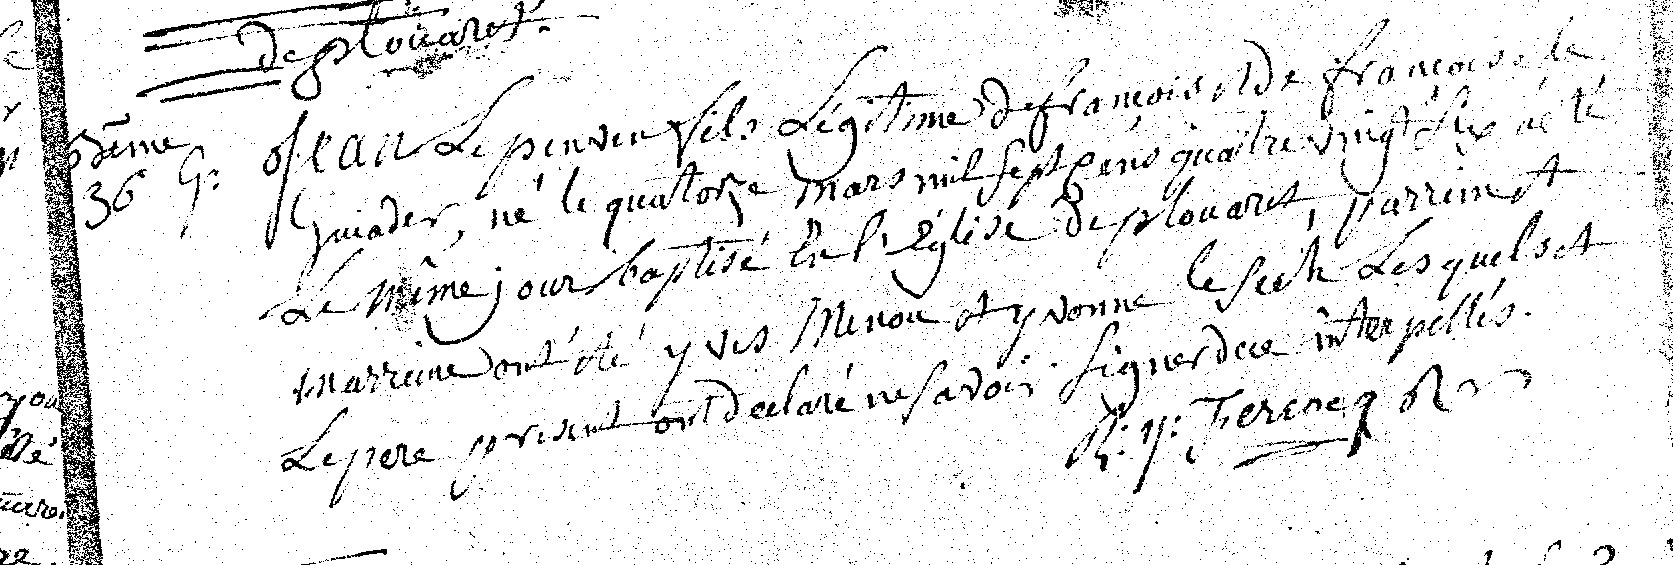 de plouaret.
36 G: Jean Le penven fils Légitime de françois et de françoise le
Guiader, né le quatorze mars mil sept cens quatre vingt six a été
Le même jour baptisé En l'Eglise de plouaret, parrin et
marrine ont été yves Menou et yvonne le Lesquels et
Le pere present ont declaré ne savoir signer de ce interpellés.